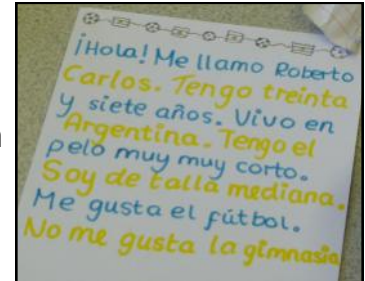 ¡Hola! Me llamo Roberto
Carlos. Tengo treinta
y siete años. Vivo en
Argentina. Tengo el
pelo muy muy corto.
Soy de talla mediana.
Me gusta el fútbol.
No me gusta la gimnasia